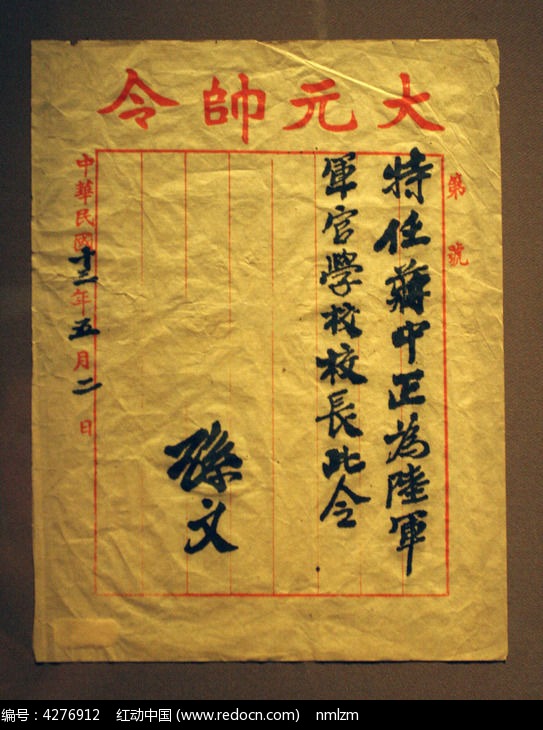 大元帥令
第 號
特任蔣中正為陸軍
軍官學校校長此令
孫文
中華民國十三年五月二日
编号：4276912 红动中国 (www.redocn.com) nmlzm